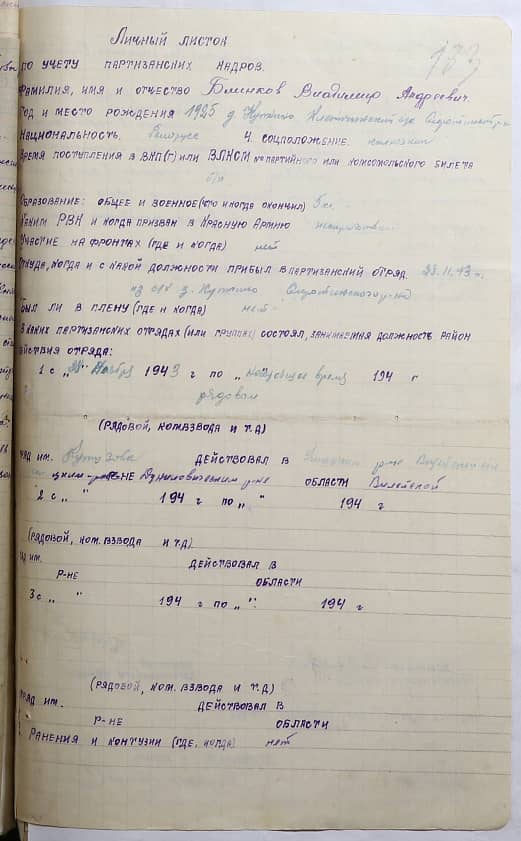 Личный листок
133
по учету партизанских кадров.
Фамилия, имя и отчество Блинков Владимир Андреевич.
Год и место рождения 1925 д.
Национальность. Белорус 4. соцположение. колхозник
Время поступления в ВКП(б) или ВЛКСМ № партийного или комсомольского билета
б/п
Образование: общее и военное (что и когда окончил) 5 кл.
Каким РВК и когда призван в Красную Армию
Участие на фронтах (где и когда) нет
Откуда, когда и с какой должности прибыл в партизанский отряд. 28.11.43 г.
из д.
Был ли в плену (где и когда) нет.
В каких партизанских отрядах (или группах) состоял, занимаемая должность район
действия отряда:
1 с „28" Ноября 1943 г по „ настоящее время 194 г
рядовой
(рядовой, ком.взвода и т.д)
ряд им. Кутузова действовал в р-не
р-не р-не области Вилейской
2 с „ " 194 г по „ " 194 г
(рядовой, ком. взвода и т.д)
яд им. действовал в
р-не области
3 с „ " 194 г по „ ". 194 г
(рядовой, ком. взвода и т.д)
ряд им. действовал в
р-не области
Ранения и контузии (где, когда) нет